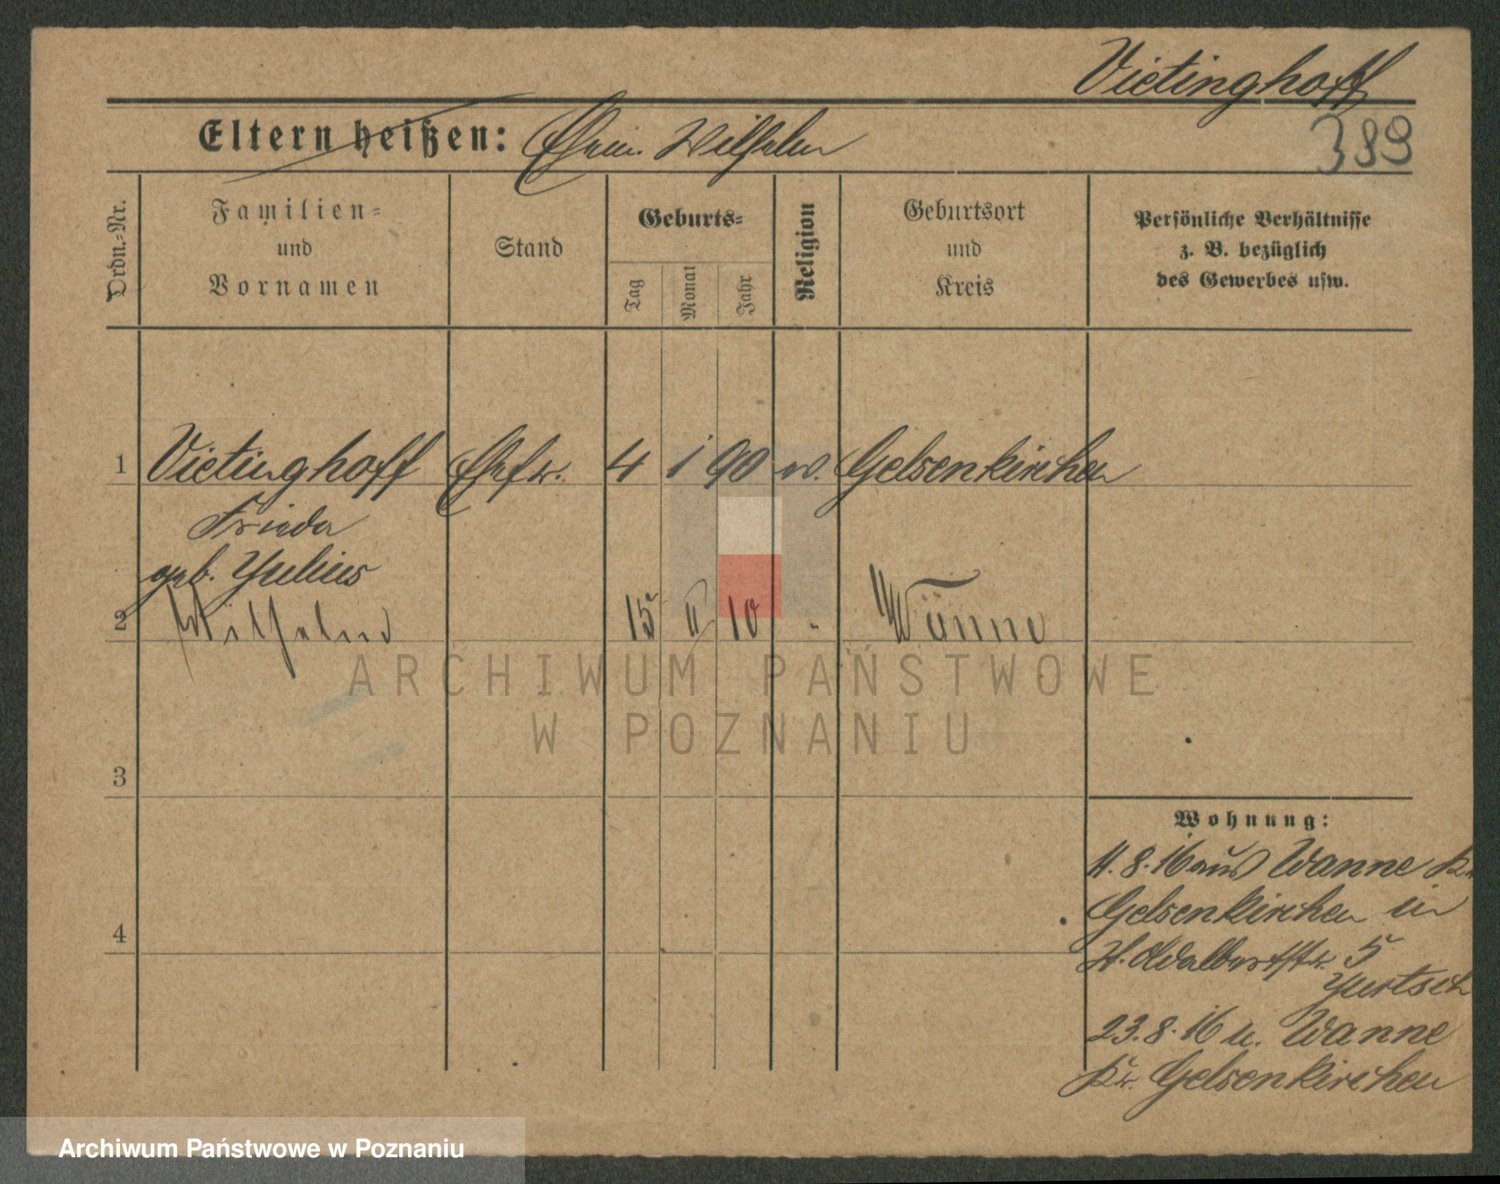 Vietinghoff
Eltern heißen: Ehem. Wilhelm
389
Ordn.-Nr.
Familien-
und
Vornamen
Stand
Geburts-
Tag
Monat
Jahr
Religion
Geburtsort
und
Kreis
Persönliche Verhältnisse
z. B. bezüglich
des Gewerbes usw.
1 Vietinghoff Ehefr. 4 1 90 ev. Gelsenkirchen
Frieda
geb. Julius
2 Wilhelm 15 II 10 " Wanne
ARCHIWUM PAŃSTWOWE
W POZNANIU
3
Wohnung:
11.8.16 aus Wanne Kr.
Gelsenkirchen in
4
St. Adalbertstr. 5
23.8.16 u. Wanne
Kr. Gelsenkirchen
Archiwum Państwowe w Poznaniu